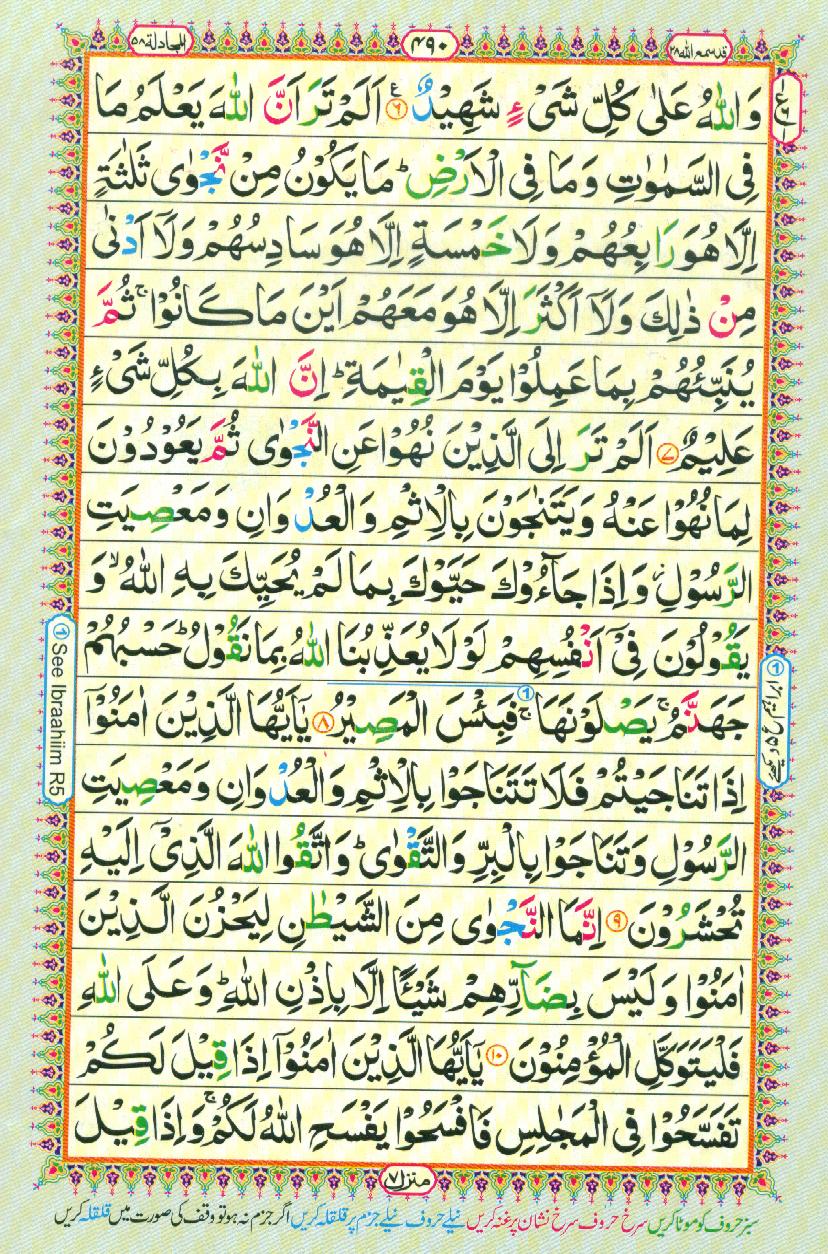 قد سمع الله ۲۸
۴۹۰
المجادلة ۵۸
وَاللّٰهُ عَلٰى كُلِّ شَیْءٍ شَهِیْدٌ ۶ اَلَمْ تَرَ اَنَّ اللّٰهَ یَعْلَمُ مَا
فِی السَّمٰوٰتِ وَمَا فِی الْاَرْضِ ؕ مَا یَكُوْنُ مِنْ نَّجْوٰى ثَلٰثَةٍ
اِلَّا هُوَ رَابِعُهُمْ وَلَا خَمْسَةٍ اِلَّا هُوَ سَادِسُهُمْ وَلَاۤ اَدْنٰى
مِنْ ذٰلِكَ وَلَاۤ اَكْثَرَ اِلَّا هُوَ مَعَهُمْ اَیْنَ مَا كَانُوْا ۚ ثُمَّ
یُنَبِّئُهُمْ بِمَا عَمِلُوْا یَوْمَ الْقِیٰمَةِ ؕ اِنَّ اللّٰهَ بِكُلِّ شَیْءٍ
عَلِیْمٌ ۷ اَلَمْ تَرَ اِلَى الَّذِیْنَ نُهُوْا عَنِ النَّجْوٰى ثُمَّ یَعُوْدُوْنَ
لِمَا نُهُوْا عَنْهُ وَیَتَنٰجَوْنَ بِالْاِثْمِ وَالْعُدْوَانِ وَمَعْصِیَتِ
الرَّسُوْلِ ؗ وَاِذَا جَآءُوْكَ حَیَّوْكَ بِمَا لَمْ یُحَیِّكَ بِهِ اللّٰهُ ۙ وَ
یَقُوْلُوْنَ فِیْۤ اَنْفُسِهِمْ لَوْلَا یُعَذِّبُنَا اللّٰهُ بِمَا نَقُوْلُ ؕ حَسْبُهُمْ
جَهَنَّمُ ۚ یَصْلَوْنَهَا ۚ فَبِئْسَ الْمَصِیْرُ ۸ یٰۤاَیُّهَا الَّذِیْنَ اٰمَنُوْۤا
اِذَا تَنَاجَیْتُمْ فَلَا تَتَنَاجَوْا بِالْاِثْمِ وَالْعُدْوَانِ وَمَعْصِیَتِ
الرَّسُوْلِ وَتَنَاجَوْا بِالْبِرِّ وَالتَّقْوٰى ؕ وَاتَّقُوا اللّٰهَ الَّذِیْۤ اِلَیْهِ
تُحْشَرُوْنَ ۹ اِنَّمَا النَّجْوٰى مِنَ الشَّیْطٰنِ لِیَحْزُنَ الَّذِیْنَ
اٰمَنُوْا وَلَیْسَ بِضَآرِّهِمْ شَیْـًٔا اِلَّا بِاِذْنِ اللّٰهِ ؕ وَعَلَى اللّٰهِ
فَلْیَتَوَكَّلِ الْمُؤْمِنُوْنَ ۱۰ یٰۤاَیُّهَا الَّذِیْنَ اٰمَنُوْۤا اِذَا قِیْلَ لَكُمْ
تَفَسَّحُوْا فِی الْمَجٰلِسِ فَافْسَحُوْا یَفْسَحِ اللّٰهُ لَكُمْ ۚ وَاِذَا قِیْلَ
① See Ibraahiim R5
منزل ۷
سبز حروف کو موٹا کریں سرخ حروف سرخ نشان پر غنہ کریں نیلے حروف نیلے جزم پر قلقلہ کریں اگر جزم نہ ہو تو وقف کی صورت میں قلقلہ کریں